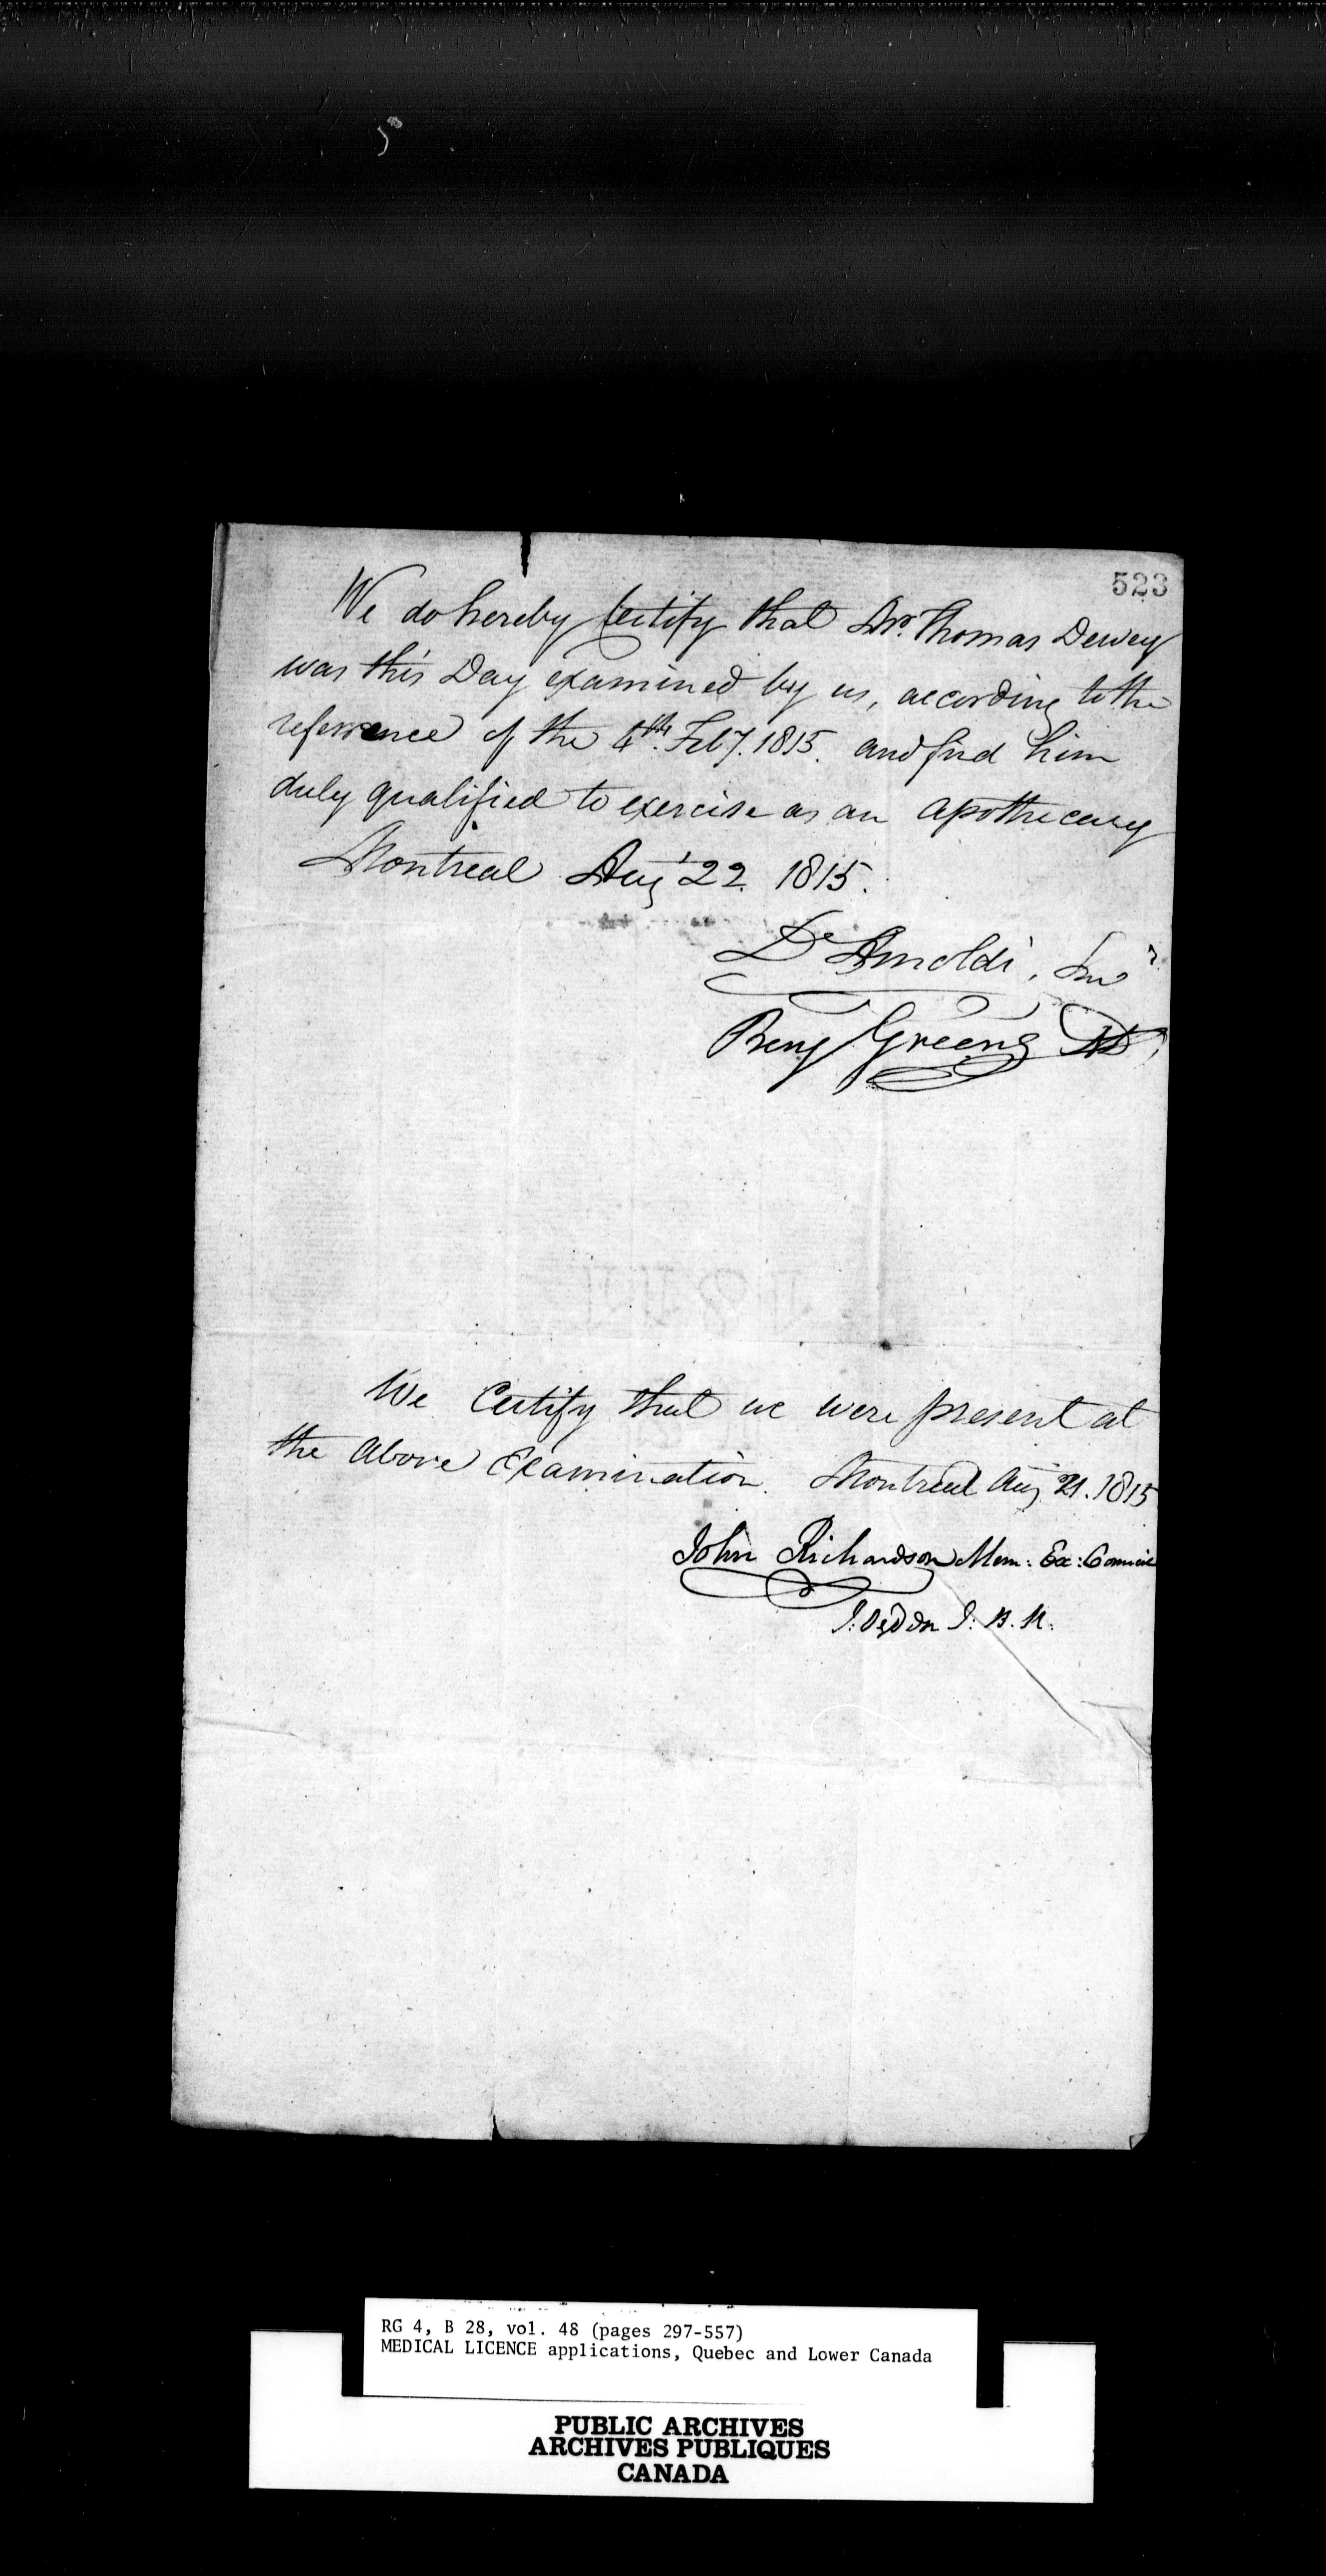 523
We do hereby Certify that Mr. Thomas Dewey
was this Day examined by us, according to the
referrence of the 4th. Feby. 1815. and find him
duly qualified to exercise as an apothecary
Montreal Aug 22. 1815.
Dl Arnoldi, Senr
Benj Green
We Certify that we were present at
the above Examination. Montreal Aug 21. 1815
John Richardson Mem: Ex: Council
I: Ogden J. B. R.
RG 4, B 28, vol. 48 (pages 297-557)
MEDICAL LICENCE applications, Quebec and Lower Canada
PUBLIC ARCHIVES
ARCHIVES PUBLIQUES
CANADA